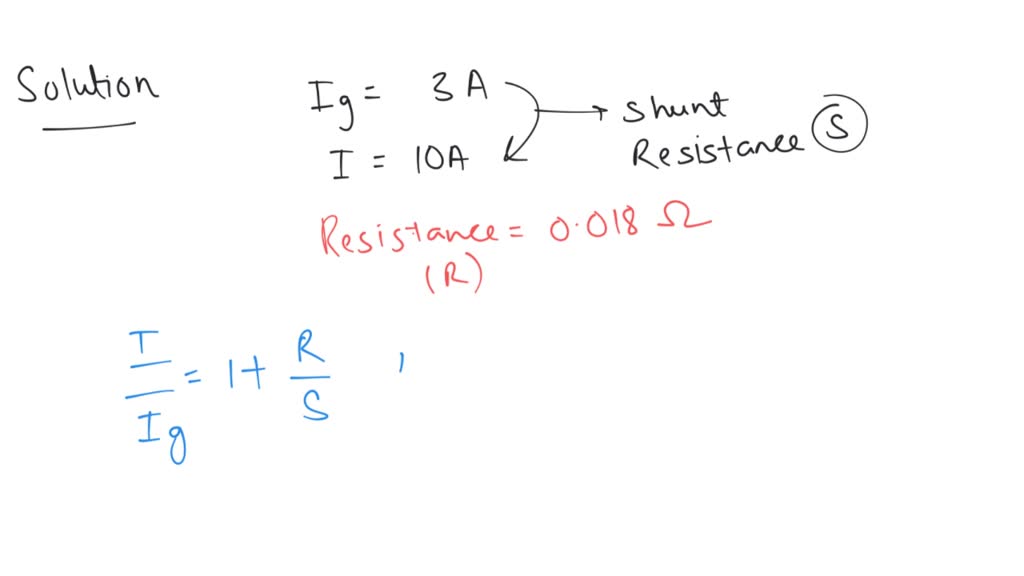 Solution
Ig = 3 A
I = 10A
Shunt
Resistance S
Resistance = 0.018 Ω
(R)
I/Ig = 1 + R/S ,